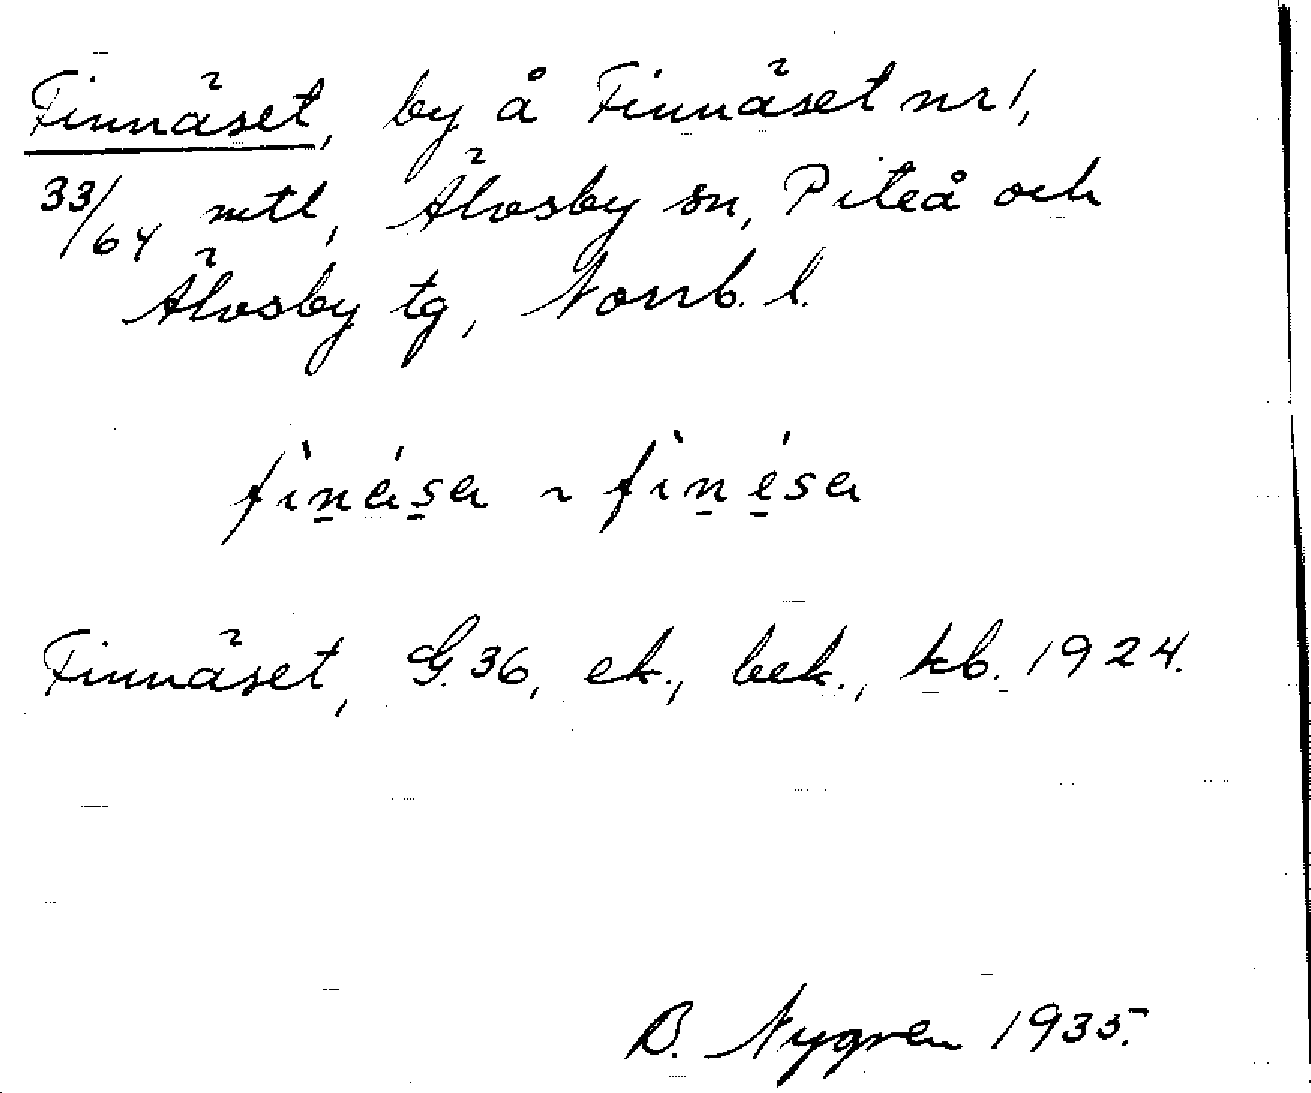 Finnäset, by å Finnäset nr 1,
33/64 mtl, Älvsby sn, Piteå och
Älvsby tg, Norrb. l.
fìnása ~ fìnésa
Finnäset, G. 36, ek., bek., kb. 1924.
B. Nygren 1935.